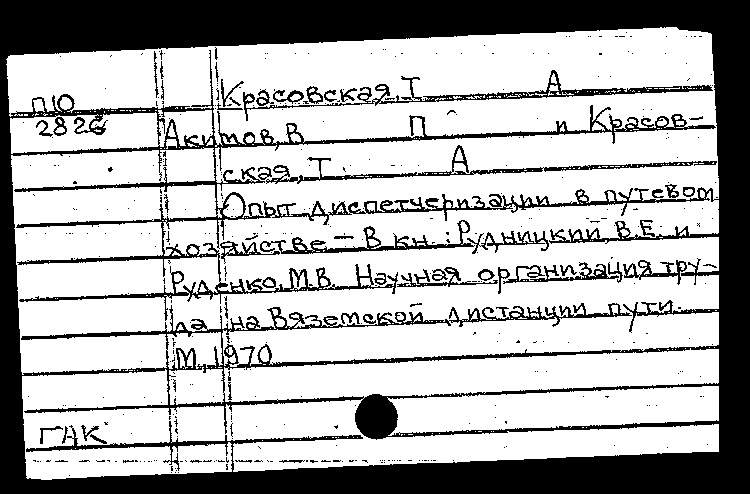 Красовская, Т А
П10
2826
Акимов, В П и Красов-
ская, Т. А
Опыт диспетчеризации в путевом
хозяйстве – В кн.: Рудницкий, В.Е. и
Руденко, М.В. Научная организация тру-
да на Вяземской дистанции пути.
М, 1970
ГАК